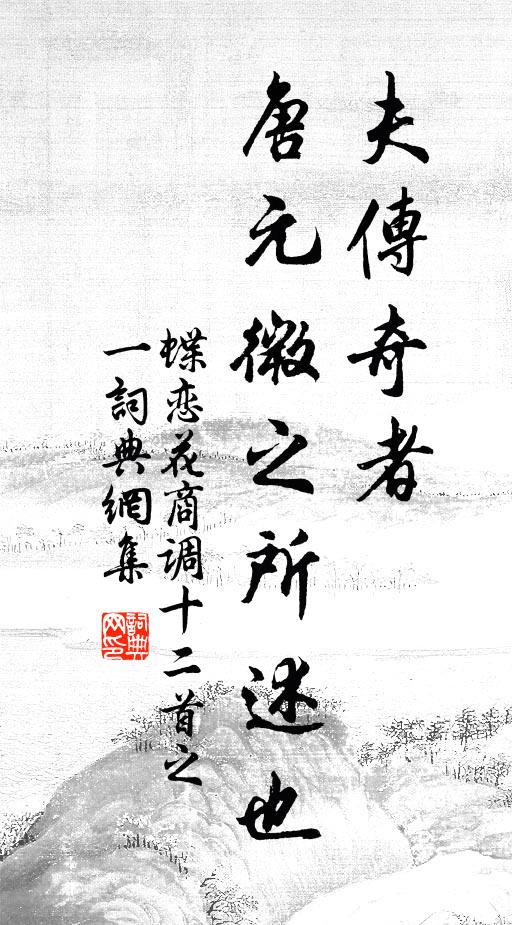 夫傳奇者
唐元微之所述也
蝶恋花商调十二首之
一詞典網集
詞典网印